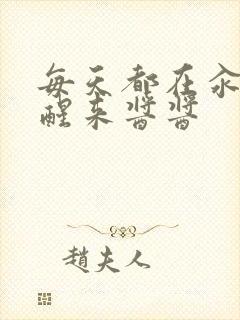 每天都在汆
醒来酱酱
趙夫人